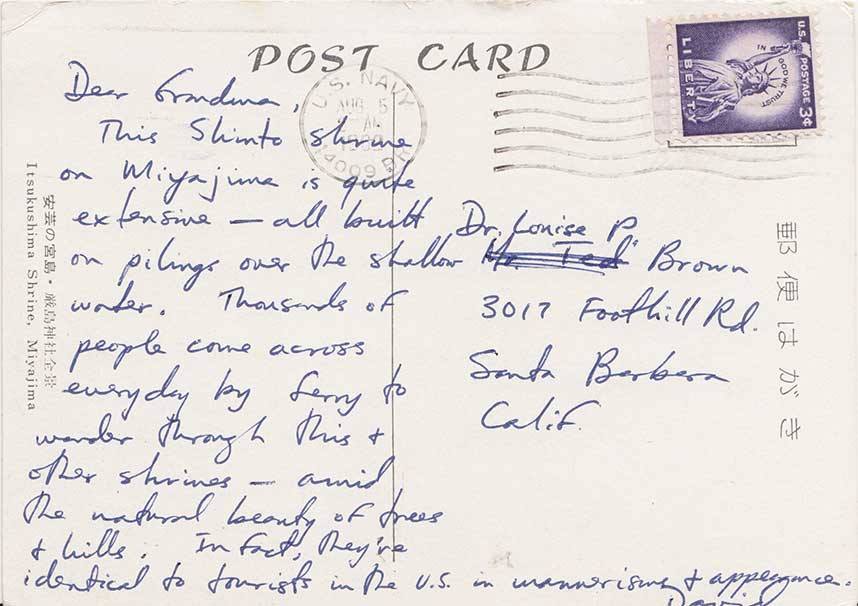 POST CARD
U.S. NAVY
AUG 5
AM
14009 BR.
U.S. POSTAGE 3¢
IN GOD WE TRUST
LIBERTY
Dear Grandma,
This Shinto shrine
on Miyajima is quite
extensive — all built
on pilings over the shallow
water. Thousands of
people come across
everyday by ferry to
wander through this +
other shrines — amid
the natural beauty of trees
+ hills. In fact, they're
identical to tourists in the U.S. in mannerisms + appearance.
David
Dr. Louise P
Mr. "Ted" Brown
3017 Foothill Rd.
Santa Barbera
Calif.
安芸の宮島・厳島神社全景
Itsukushima Shrine, Miyajima
郵便はがき